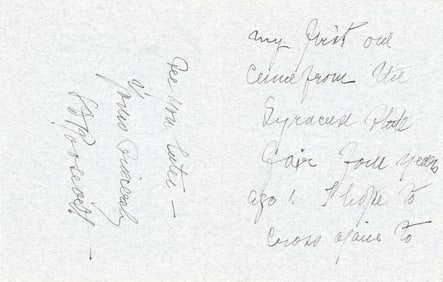 my first one
came from the
Syracuse State
Fair four years
ago! I hope to
cross again to
See you later —
Yours Sincerely
Roosevelt —